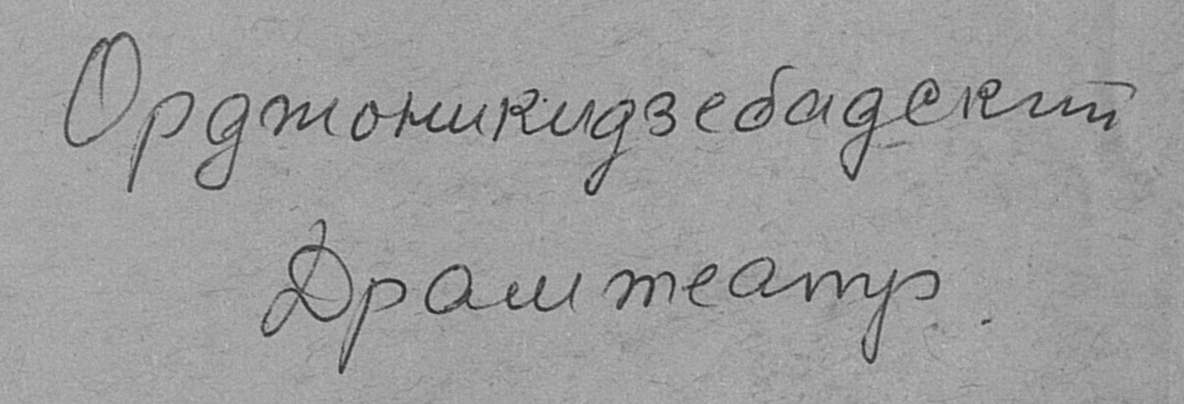 Орджоникидзебадский
Драмтеатр.